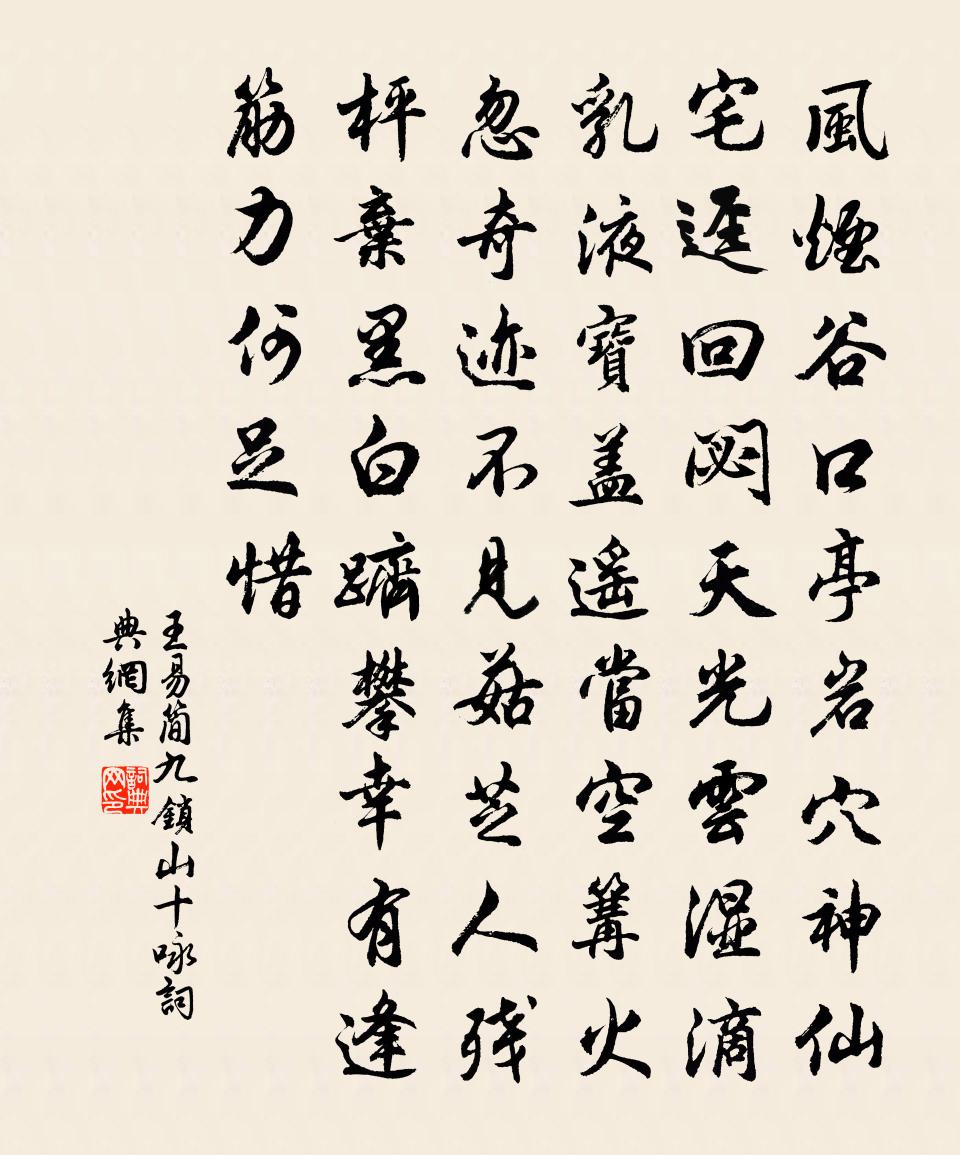 風煙谷口亭岩穴神仙
宅逕回閟天光雲濕滴
乳液寶蓋遥當空篝火
忽奇迹不見菇芝人残
枰棄黑白躋攀幸有逢
筋力何足惜
王易简九鎖山十咏詞
典網集
詞典
网印